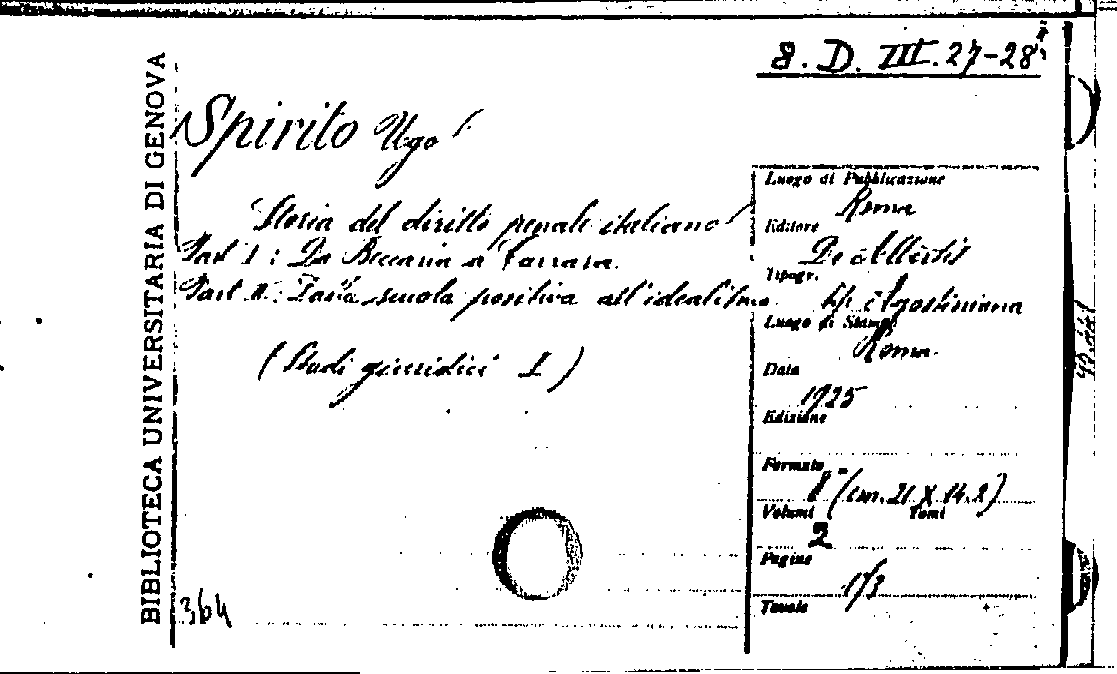 8. D. III. 27-28
BIBLIOTECA UNIVERSITARIA DI GENOVA
Spirito Ugo
Storia del diritto penale italiano
Part I : Da Beccaria a Carrara.
Part II : Dalla scuola positiva all'idealismo.
(Studi giuridici I)
364
Luogo di Pubblicazione
Roma
Editore
De Alberti
Tipogr.
tip. Agostiniana
Luogo di Stampa
Roma.
Data
1925
Edizione
Formato
8° (cm. 21 X 14.2)
Volumi Tomi
2
Pagine
Tavole